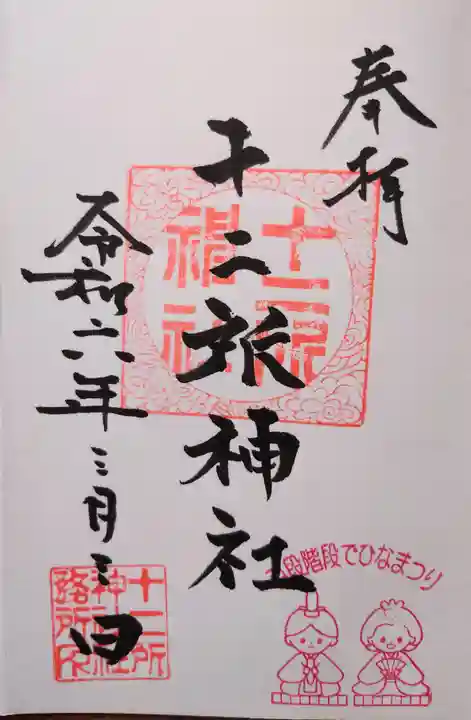 奉拝
十二所神社
令和六年三月三日
十二所
神社
段階段でひなまつり
十二所
神社
務所印